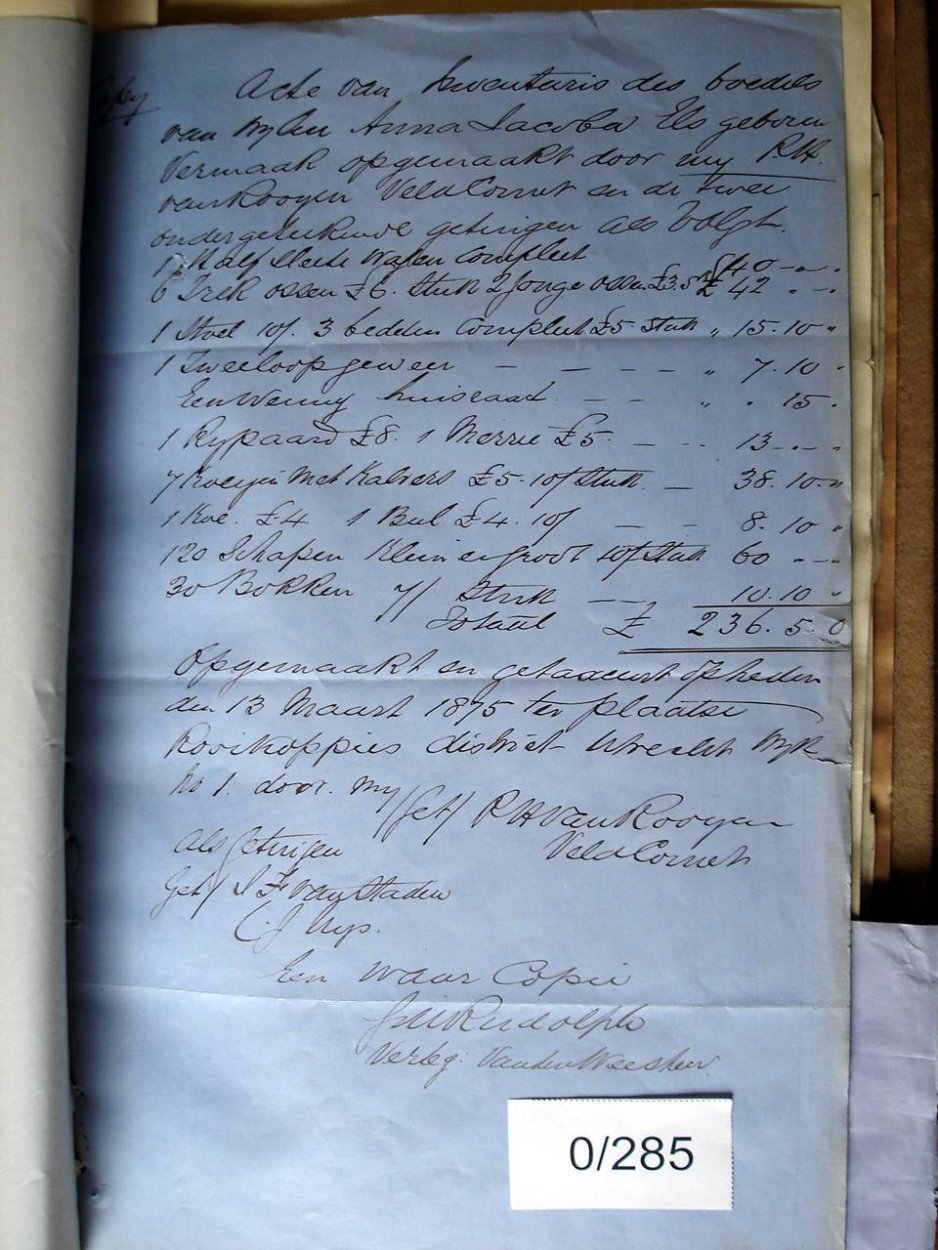 Copy
Acte van Inventaris des boedels
van wylen Anna Jacoba Els geboren
Vermaak opgemaakt door my R H.
van Rooyen VeldCornet en de twee
ondergetekende getuigen als volgt.
1 Half Sleete Wagen Compleet £40 - " "
6 Trek ossen £6. Stuk 2 Jonge ossen £3. Stk £ 42 " - "
1 Stoel 10/. 3 bedden Compleet £5 Stuk " 15. 10 "
1 Tweeloop geweer — — — — " 7. 10 "
Een Weinig huisraad. — — " " 15 "
1 Rypaard £8. 1 Merrie £5. — " 13 - " - "
7 Koeyen Met Kalvers £5. 10/ Stuk. — 38. 10 - "
1 Koe. £4. 1 Bul £4. 10/ — — 8. 10 "
120 Schapen Klein en groot 10/ Stuk 60 " - "
30 Bokken 7/ Stuk — — 10. 10 "
Totaal £ 236. 5 0
Opgemaakt en getaxeerd op heden
den 13 Maart 1875 ter plaatse
Rooikoppies district Utrecht Wyk
No 1. door. My /Get/ R H Van Rooyen
VeldCornet
Als getuigen
Get/ J F Van Staden
C J Uys.
Een Waar Copie
Rudolph
Verteg: Van den Weesheer.
0/285